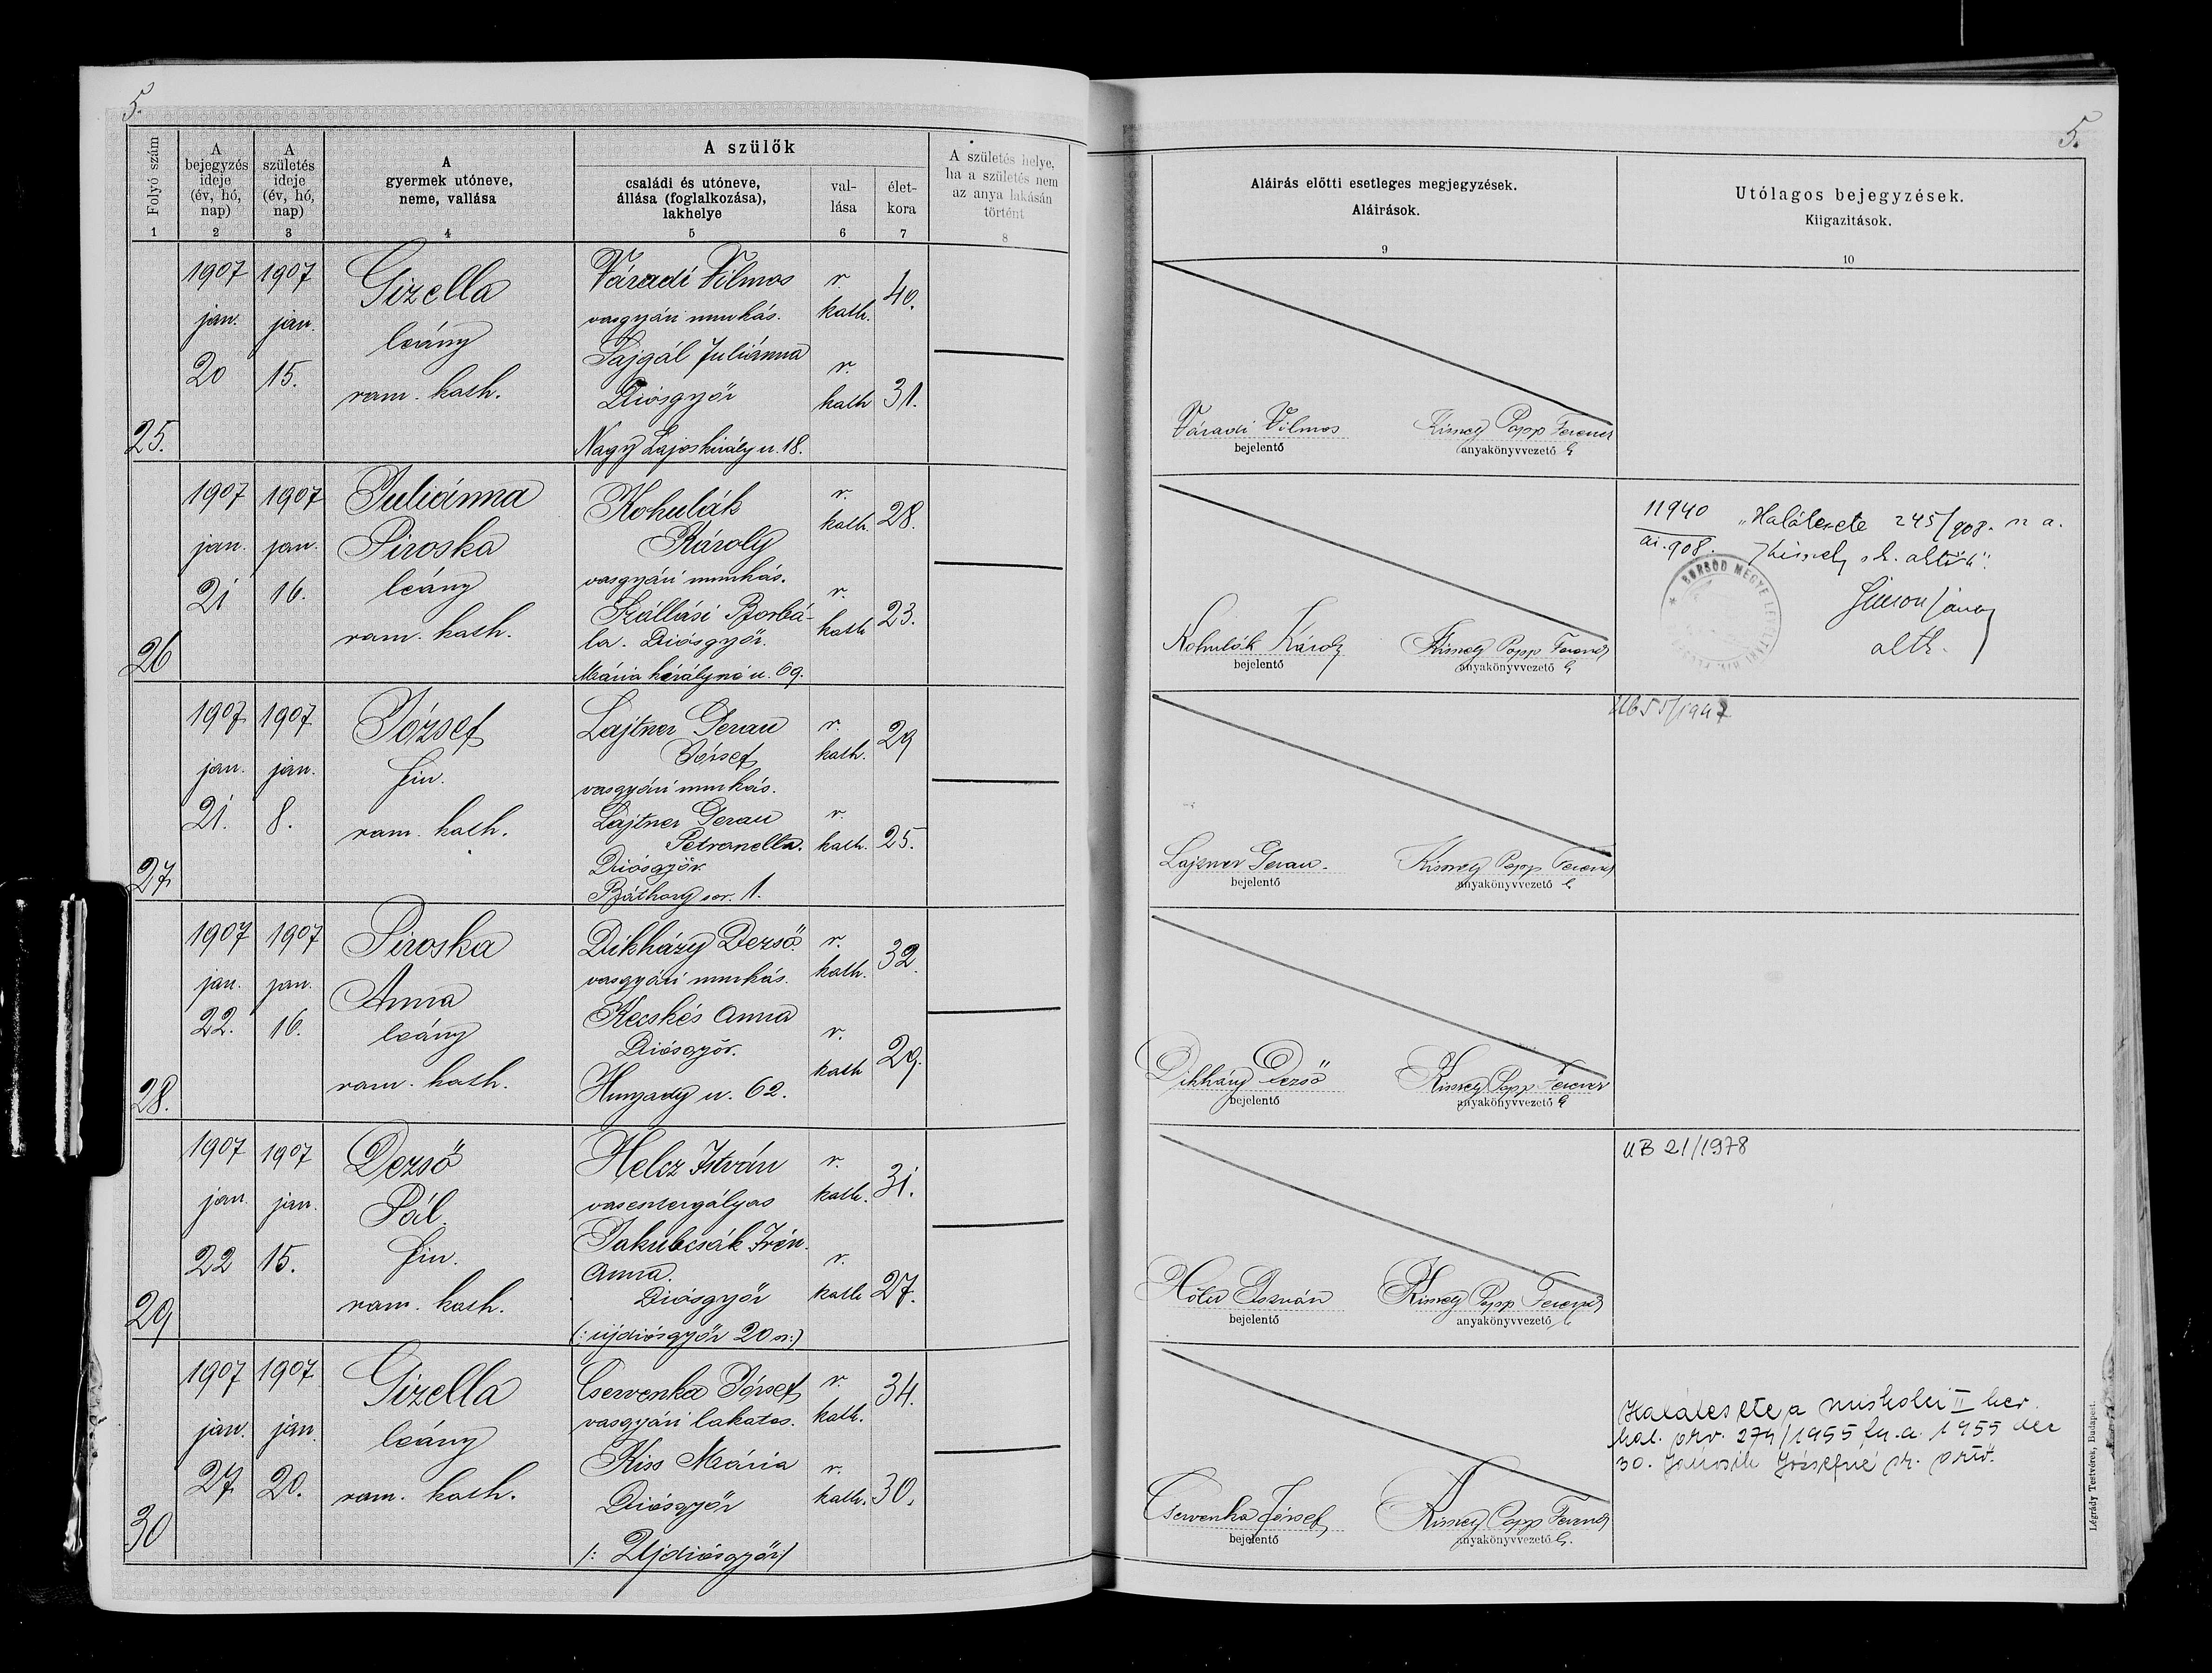 5.
Folyó szám
A bejegyzés ideje (év, hó, nap)
A születés ideje (év, hó, nap)
A gyermek utóneve, neme, vallása
A szülők
családi és utóneve, állása (foglalkozása), lakhelye
vallása
életkora
A születés helye, ha a születés nem az anya lakásán történt
1 2 3 4 5 6 7 8
25.
1907 jan. 20
1907 jan. 15.
Gizella
leány
rom. kath.
Váradi Vilmos
vasgyári munkás.
Sajgál Juliánna
Diósgyőr
Nagy Lajos király u. 18.
r. kath. 40.
r. kath 31.
26
1907 jan. 21
1907 jan. 16.
Juliánna
Piroska
leány
rom. kath.
Kohulák
Károly
vasgyári munkás.
Szállási Borbá-
la. Diósgyőr.
Mária királyné u. 69.
r. kath. 28.
r. kath 23.
27
1907 jan. 21.
1907 jan. 8.
József
fiu.
rom. kath.
Lajtner Gerau
József
vasgyári munkás.
Lajtner Gerau
Petronella.
Diósgyőr.
Báthory sor. 1.
r. kath. 29
r. kath. 25.
28.
1907 jan. 22.
1907 jan. 16.
Piroska
Anna
leány
rom. kath.
Dikházy Dezső.
vasgyári munkás.
Kecskés Anna
Diósgyőr.
Hunyady u. 62.
r. kath. 32.
r. kath 29.
29
1907 jan. 22
1907 jan. 15.
Dezső
Pál.
fiu.
rom. kath.
Helcz István
vasesztergályos
Jakubcsák Irén
Anna.
Diósgyőr
(: újdiósgyőr 20 sz:)
r. kath. 31.
r. kath 27.
30
1907 jan. 27
1907 jan. 20.
Gizella
leány
rom. kath.
Cservenka József
vasgyári lakatos.
Kiss Mária
Diósgyőr
/: Ujdiósgyőr:/
r. kath. 34.
r. kath. 30.
5.
Aláirás előtti esetleges megjegyzések.
Aláirások.
9
Utólagos bejegyzések.
Kiigazitások.
10
Váradi Vilmos
bejelentő
Kismey Papp Ferencz
anyakönyvvezető
11940
ai. 908.
"Halálesete 245/908.
BORSOD MEGYE
Kohulák Károly
bejelentő
Kismey Papp Ferencz
anyakönyvvezető
55/1947
Lajzner Gerau.
bejelentő
Kismey Papp Ferencz
anyakönyvvezető
Dikházy Dezső
bejelentő
Kismey Papp Ferencz
anyakönyvvezető
UB 21/1978
István
bejelentő
Kismey Papp Ferencz
anyakönyvvezető
Halálesete a miskolci II ker.
hal. akv. 274/1955 fsz. a. 1955 dec
30. Józsefné
Cservenka József
bejelentő
Kismey Papp Ferencz
anyakönyvvezető
Légrády Testvérek, Budapest.